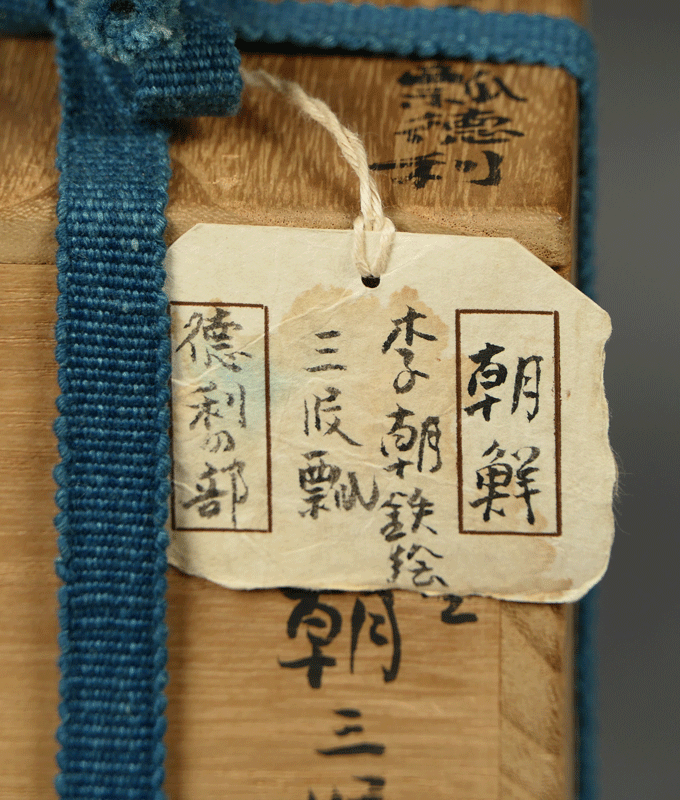 瓢
徳
利
朝鮮
李朝鉄絵
三段瓢
徳利の部
朝
三段